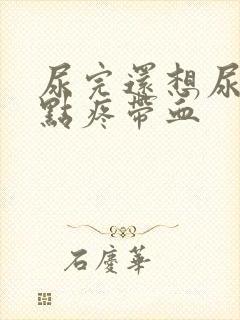 尿完還想尿
點疼帶血
石慶華